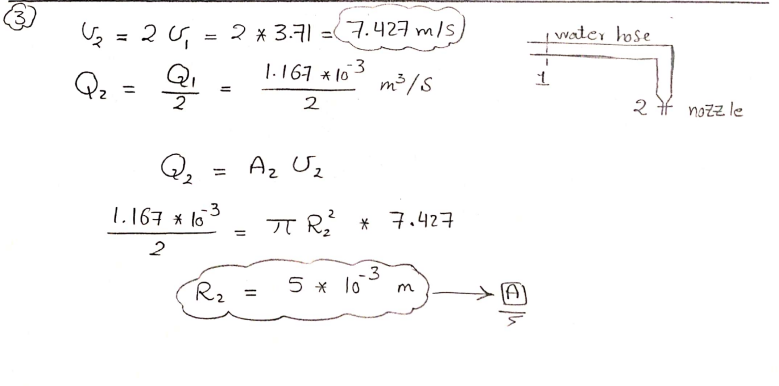 3
υ₂ = 2 υ₁ = 2 * 3.71 = 7.427 m/s
Q₂ = Q₁/2 = 1.167 * 10⁻³/2 m³/s
water hose
1
2 nozzle
Q₂ = A₂ υ₂
1.167 * 10⁻³/2 = π R₂² * 7.427
R₂ = 5 * 10⁻³ m → A